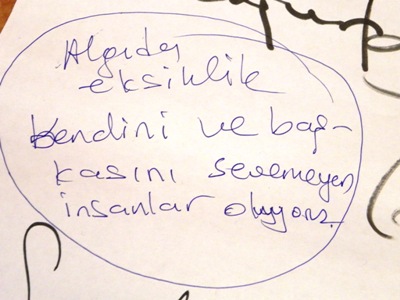 Algıda
eksiklik
kendini ve baş-
kasını sevemeyen
insanlar oluyoruz.